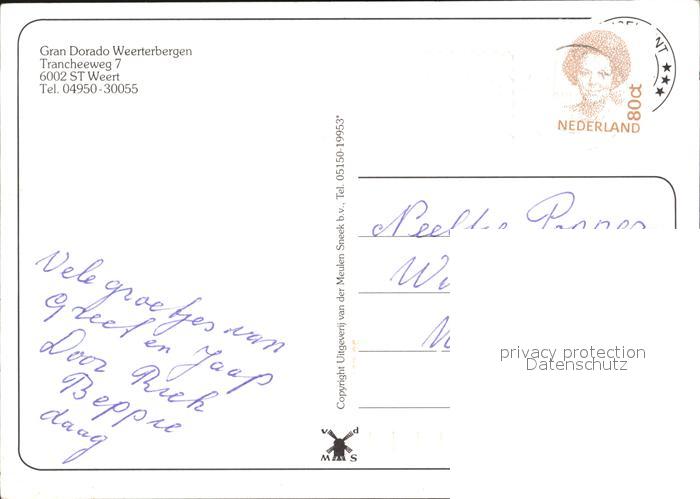 Gran Dorado Weerterbergen
Trancheeweg 7
6002 ST Weert
Tel. 04950-30055
NEDERLAND
80ct
Copyright Uitgeverij van der Meulen Sneek b.v., Tel. 05150-19953*
Neeltje
Vele groetjes van
Greet en Jaap
Door Riek
Beppie
daag
v d
M S
privacy protection
Datenschutz